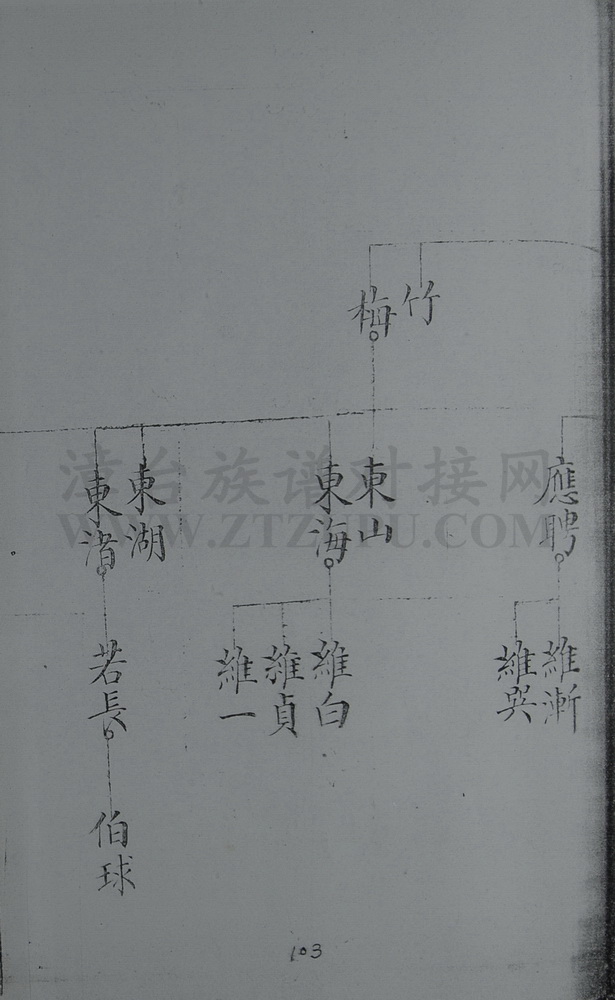 竹
梅
應聘
東山
東海
東湖
東渚
維漸
維巽
維白
維貞
維一
若長
伯球
漳台族谱对接网
WWW.ZTZUPU.COM
103